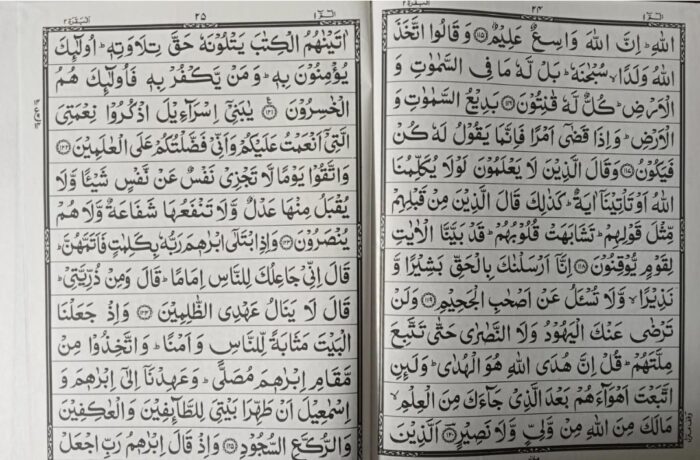 البقرة ٢
٢٤
الٓمّٓ ١
اللّٰهِ ؕ اِنَّ اللّٰهَ وَاسِعٌ عَلِيْمٌ ﴿۱۱۵﴾ وَ قَالُوا اتَّخَذَ
اللّٰهُ وَلَدًا ۙ سُبْحٰنَهٗ ؕ بَلْ لَّهٗ مَا فِی السَّمٰوٰتِ وَ
الْاَرْضِ ؕ كُلٌّ لَّهٗ قٰنِتُوْنَ ﴿۱۱۶﴾ بَدِيْعُ السَّمٰوٰتِ وَ
الْاَرْضِ ؕ وَاِذَا قَضٰۤی اَمْرًا فَاِنَّمَا يَقُوْلُ لَهٗ كُنْ
فَيَكُوْنُ ﴿۱۱۷﴾ وَقَالَ الَّذِيْنَ لَا يَعْلَمُوْنَ لَوْلَا يُكَلِّمُنَا
اللّٰهُ اَوْ تَاْتِيْنَاۤ اٰيَةٌ ؕ كَذٰلِكَ قَالَ الَّذِيْنَ مِنْ قَبْلِهِمْ
مِّثْلَ قَوْلِهِمْ ؕ تَشَابَهَتْ قُلُوْبُهُمْ ؕ قَدْ بَيَّنَّا الْاٰيٰتِ
لِقَوْمٍ يُّوْقِنُوْنَ ﴿۱۱۸﴾ اِنَّاۤ اَرْسَلْنٰكَ بِالْحَقِّ بَشِيْرًا وَّ
نَذِيْرًا ۙ وَّلَا تُسْـَٔلُ عَنْ اَصْحٰبِ الْجَحِيْمِ ﴿۱۱۹﴾ وَلَنْ
تَرْضٰی عَنْكَ الْيَهُوْدُ وَلَا النَّصٰرٰی حَتّٰی تَتَّبِعَ
مِلَّتَهُمْ ؕ قُلْ اِنَّ هُدَی اللّٰهِ هُوَ الْهُدٰی ؕ وَلَئِنِ
اتَّبَعْتَ اَهْوَآءَهُمْ بَعْدَ الَّذِیْ جَآءَكَ مِنَ الْعِلْمِ ۙ
مَالَكَ مِنَ اللّٰهِ مِنْ وَّلِیٍّ وَّلَا نَصِيْرٍ ﴿۱۲۰﴾ اَلَّذِيْنَ
البقرة ٢
٢٥
الٓمّٓ ١
اٰتَيْنٰهُمُ الْكِتٰبَ يَتْلُوْنَهٗ حَقَّ تِلَاوَتِهٖ ؕ اُولٰٓئِكَ
يُؤْمِنُوْنَ بِهٖ ؕ وَمَنْ يَّكْفُرْ بِهٖ فَاُولٰٓئِكَ هُمُ
الْخٰسِرُوْنَ ﴿۱۲۱﴾ يٰبَنِیْۤ اِسْرَآءِيْلَ اذْكُرُوْا نِعْمَتِیَ
الَّتِیْۤ اَنْعَمْتُ عَلَيْكُمْ وَاَنِّیْ فَضَّلْتُكُمْ عَلَی الْعٰلَمِيْنَ ﴿۱۲۲﴾
وَاتَّقُوْا يَوْمًا لَّا تَجْزِیْ نَفْسٌ عَنْ نَّفْسٍ شَيْـًٔا وَّلَا
يُقْبَلُ مِنْهَا عَدْلٌ وَّلَا تَنْفَعُهَا شَفَاعَةٌ وَّلَا هُمْ
يُنْصَرُوْنَ ﴿۱۲۳﴾ وَاِذِ ابْتَلٰۤی اِبْرٰهٖمَ رَبُّهٗ بِكَلِمٰتٍ فَاَتَمَّهُنَّ ؕ
قَالَ اِنِّیْ جَاعِلُكَ لِلنَّاسِ اِمَامًا ؕ قَالَ وَمِنْ ذُرِّيَّتِیْ ؕ
قَالَ لَا يَنَالُ عَهْدِی الظّٰلِمِيْنَ ﴿۱۲۴﴾ وَاِذْ جَعَلْنَا
الْبَيْتَ مَثَابَةً لِّلنَّاسِ وَاَمْنًا ؕ وَاتَّخِذُوْا مِنْ
مَّقَامِ اِبْرٰهٖمَ مُصَلًّی ؕ وَعَهِدْنَاۤ اِلٰۤی اِبْرٰهٖمَ وَ
اِسْمٰعِيْلَ اَنْ طَهِّرَا بَيْتِیَ لِلطَّآئِفِيْنَ وَالْعٰكِفِيْنَ
وَالرُّكَّعِ السُّجُوْدِ ﴿۱۲۵﴾ وَاِذْ قَالَ اِبْرٰهٖمُ رَبِّ اجْعَلْ